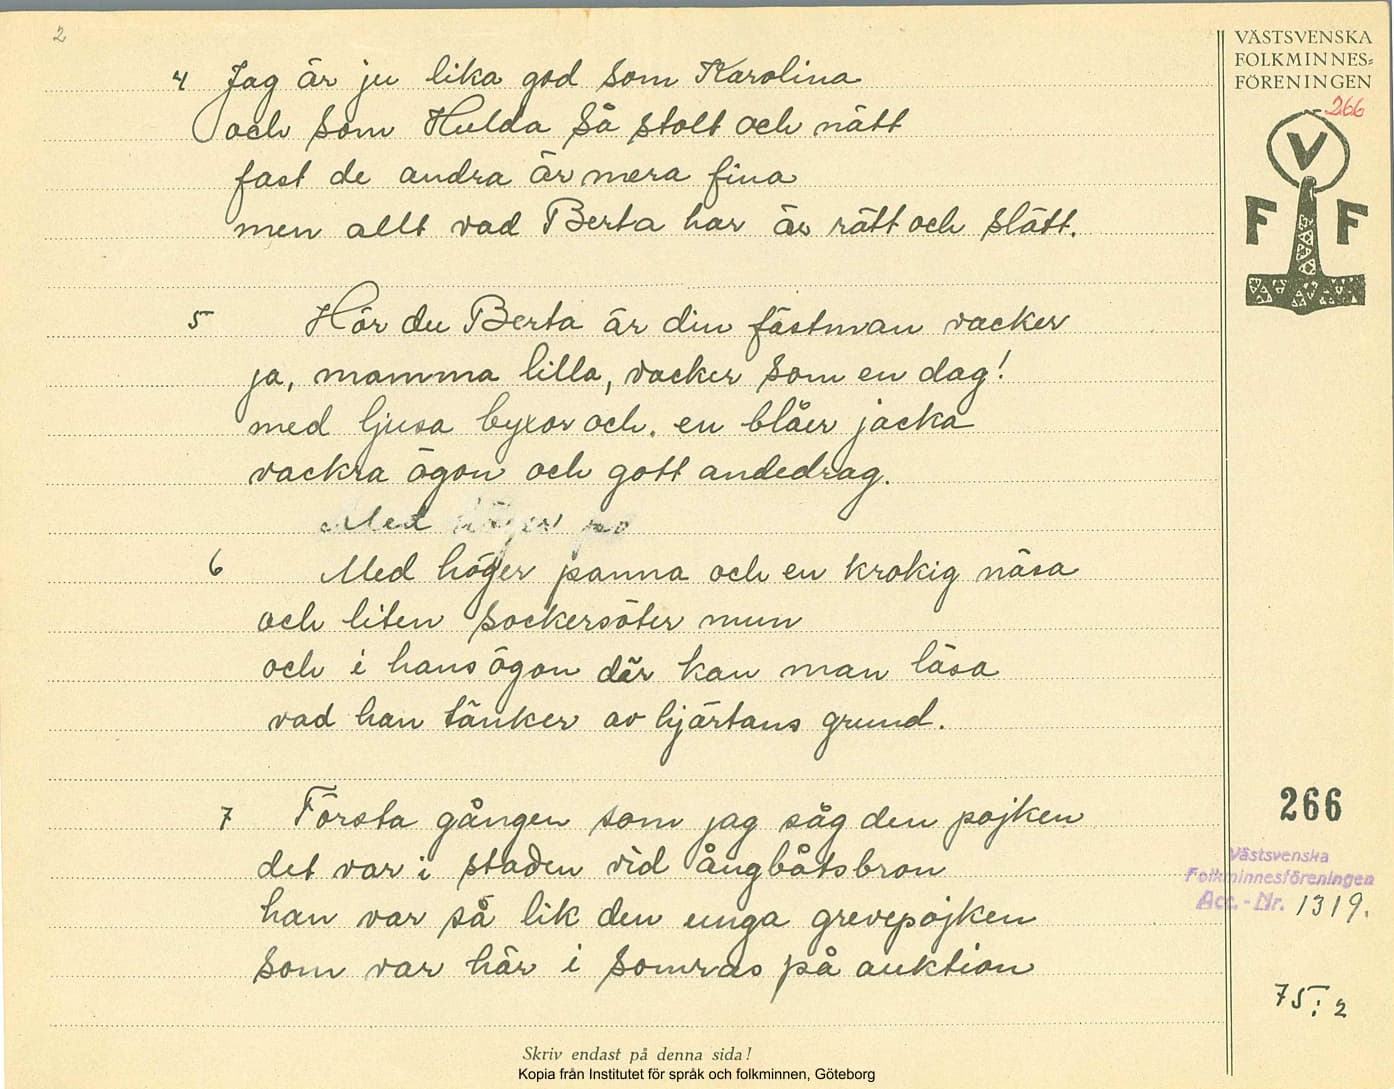 2
VÄSTSVENSKA
FOLKMINNES=
FÖRENINGEN
266
V
F F
4 Jag är ju lika god som Karolina
och som Hulda så stolt och nätt
fast de andra är mera fina
men allt vad Berta har är rätt och slätt.
5 Hör du Berta är din fästman vacker
ja, mamma lilla, vacker som en dag!
med ljusa byxor och. en blåer jacka
vackra ögon och gott andedrag.
Med höger pa
6 Med höger panna och en krokig näsa
och liten sockersöter mun
och i hans ögon där kan man läsa
vad han tänker av hjärtans grund.
7 Första gången som jag såg den pojken
det var i staden vid ångbåtsbron
han var så lik den unga grevepojken
som var här i somras på auktion
266
Västsvenska
Folkminnesföreningen
Acc.-Nr. 1319.
75:2
Skriv endast på denna sida!
Kopia från Institutet för språk och folkminnen, Göteborg